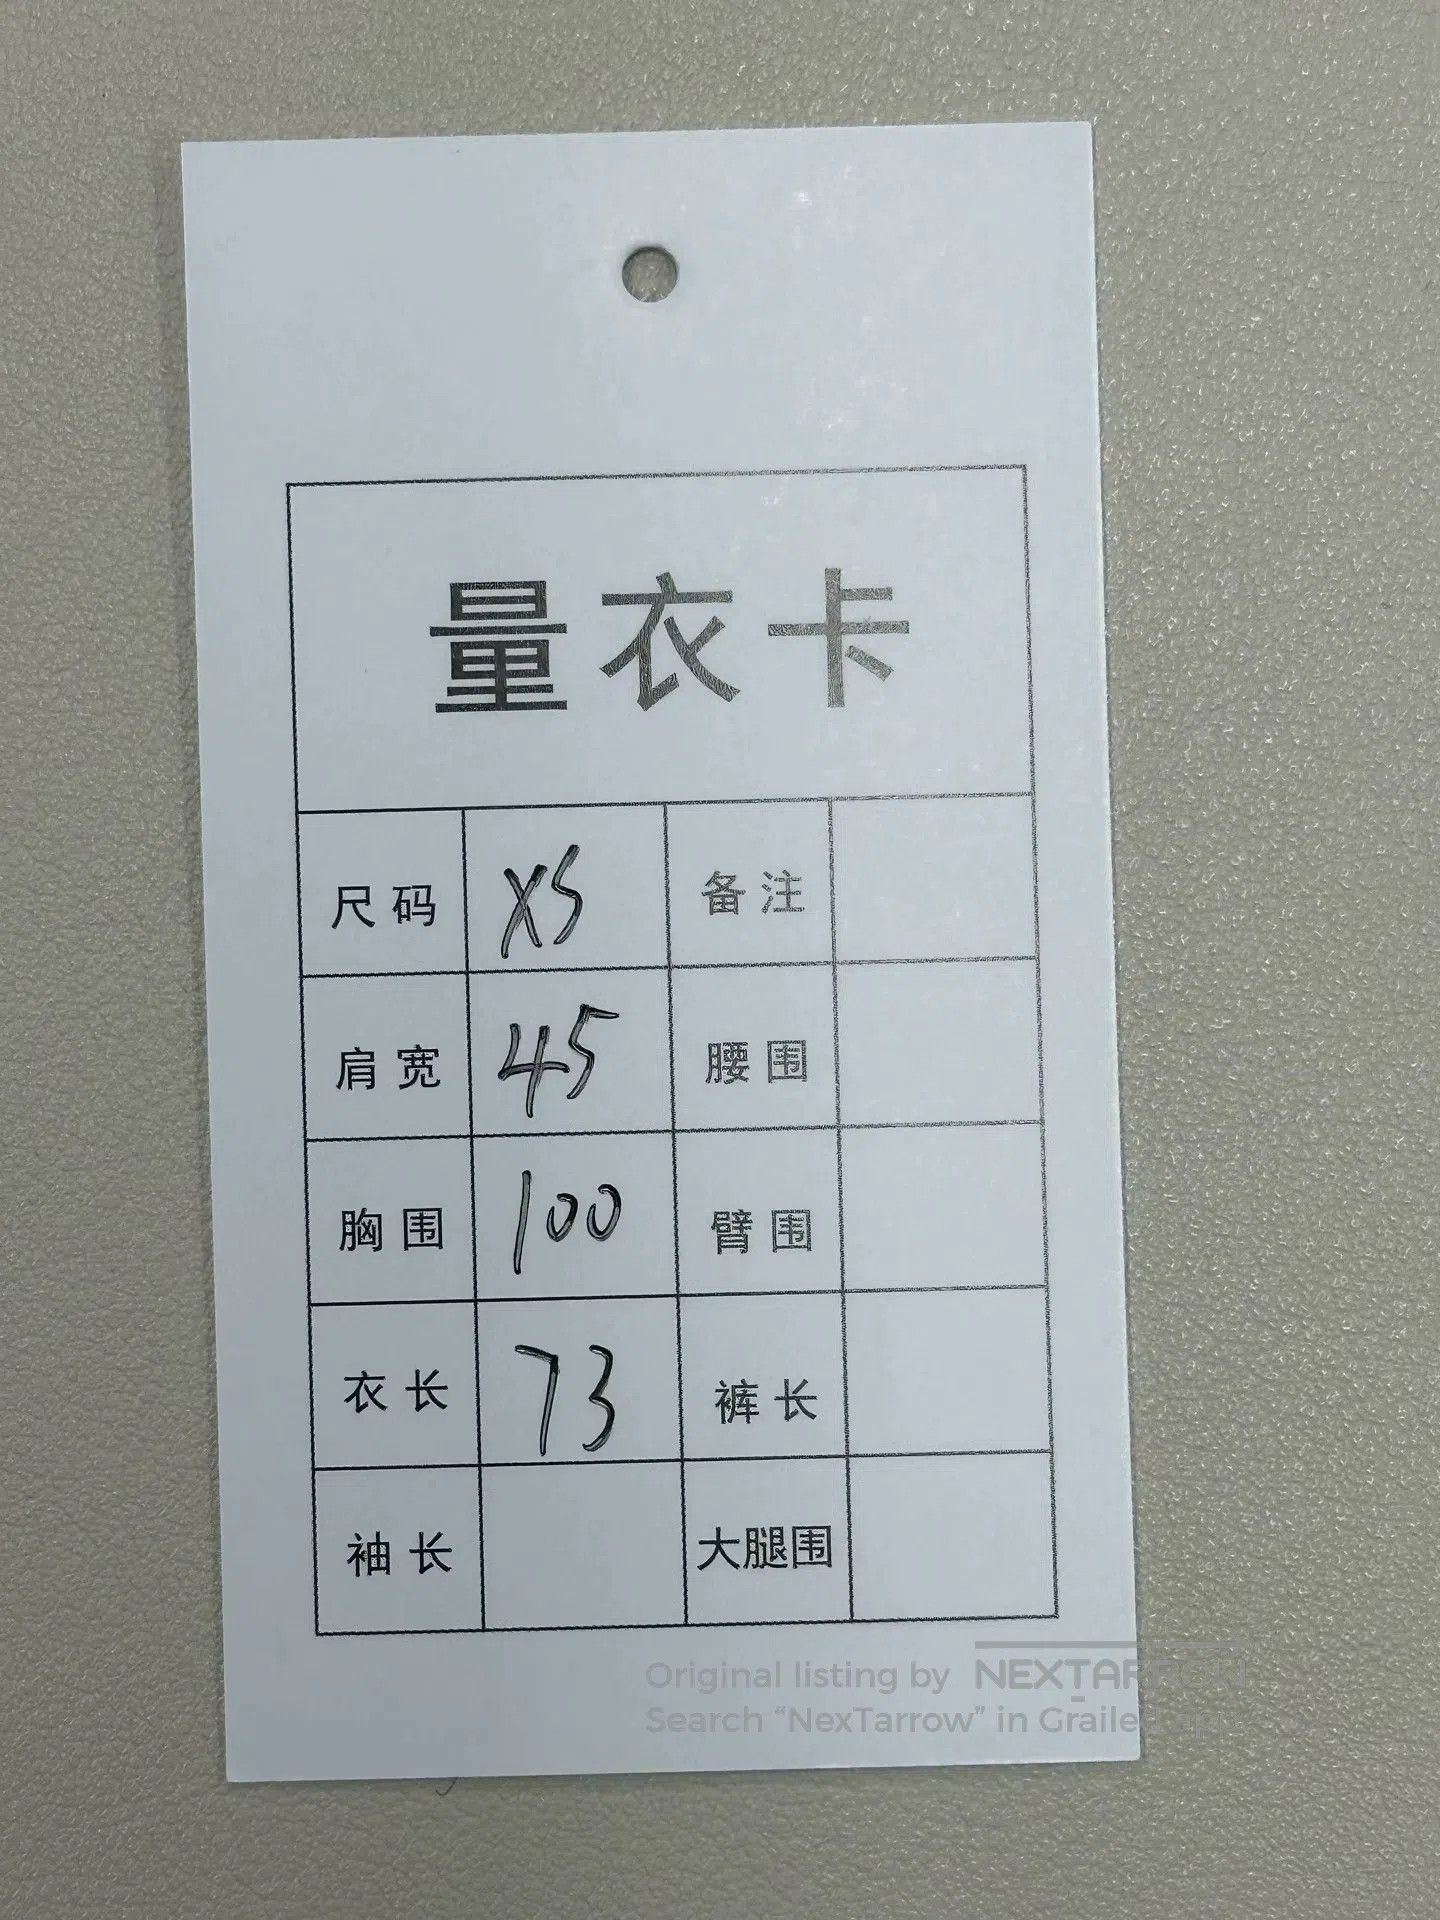 量衣卡
尺码 XS 备注
肩宽 45 腰围
胸围 100 臂围
衣长 73 裤长
袖长 大腿围
Original listing by NEXTARROW
Search “NexTarrow” in Grailed app